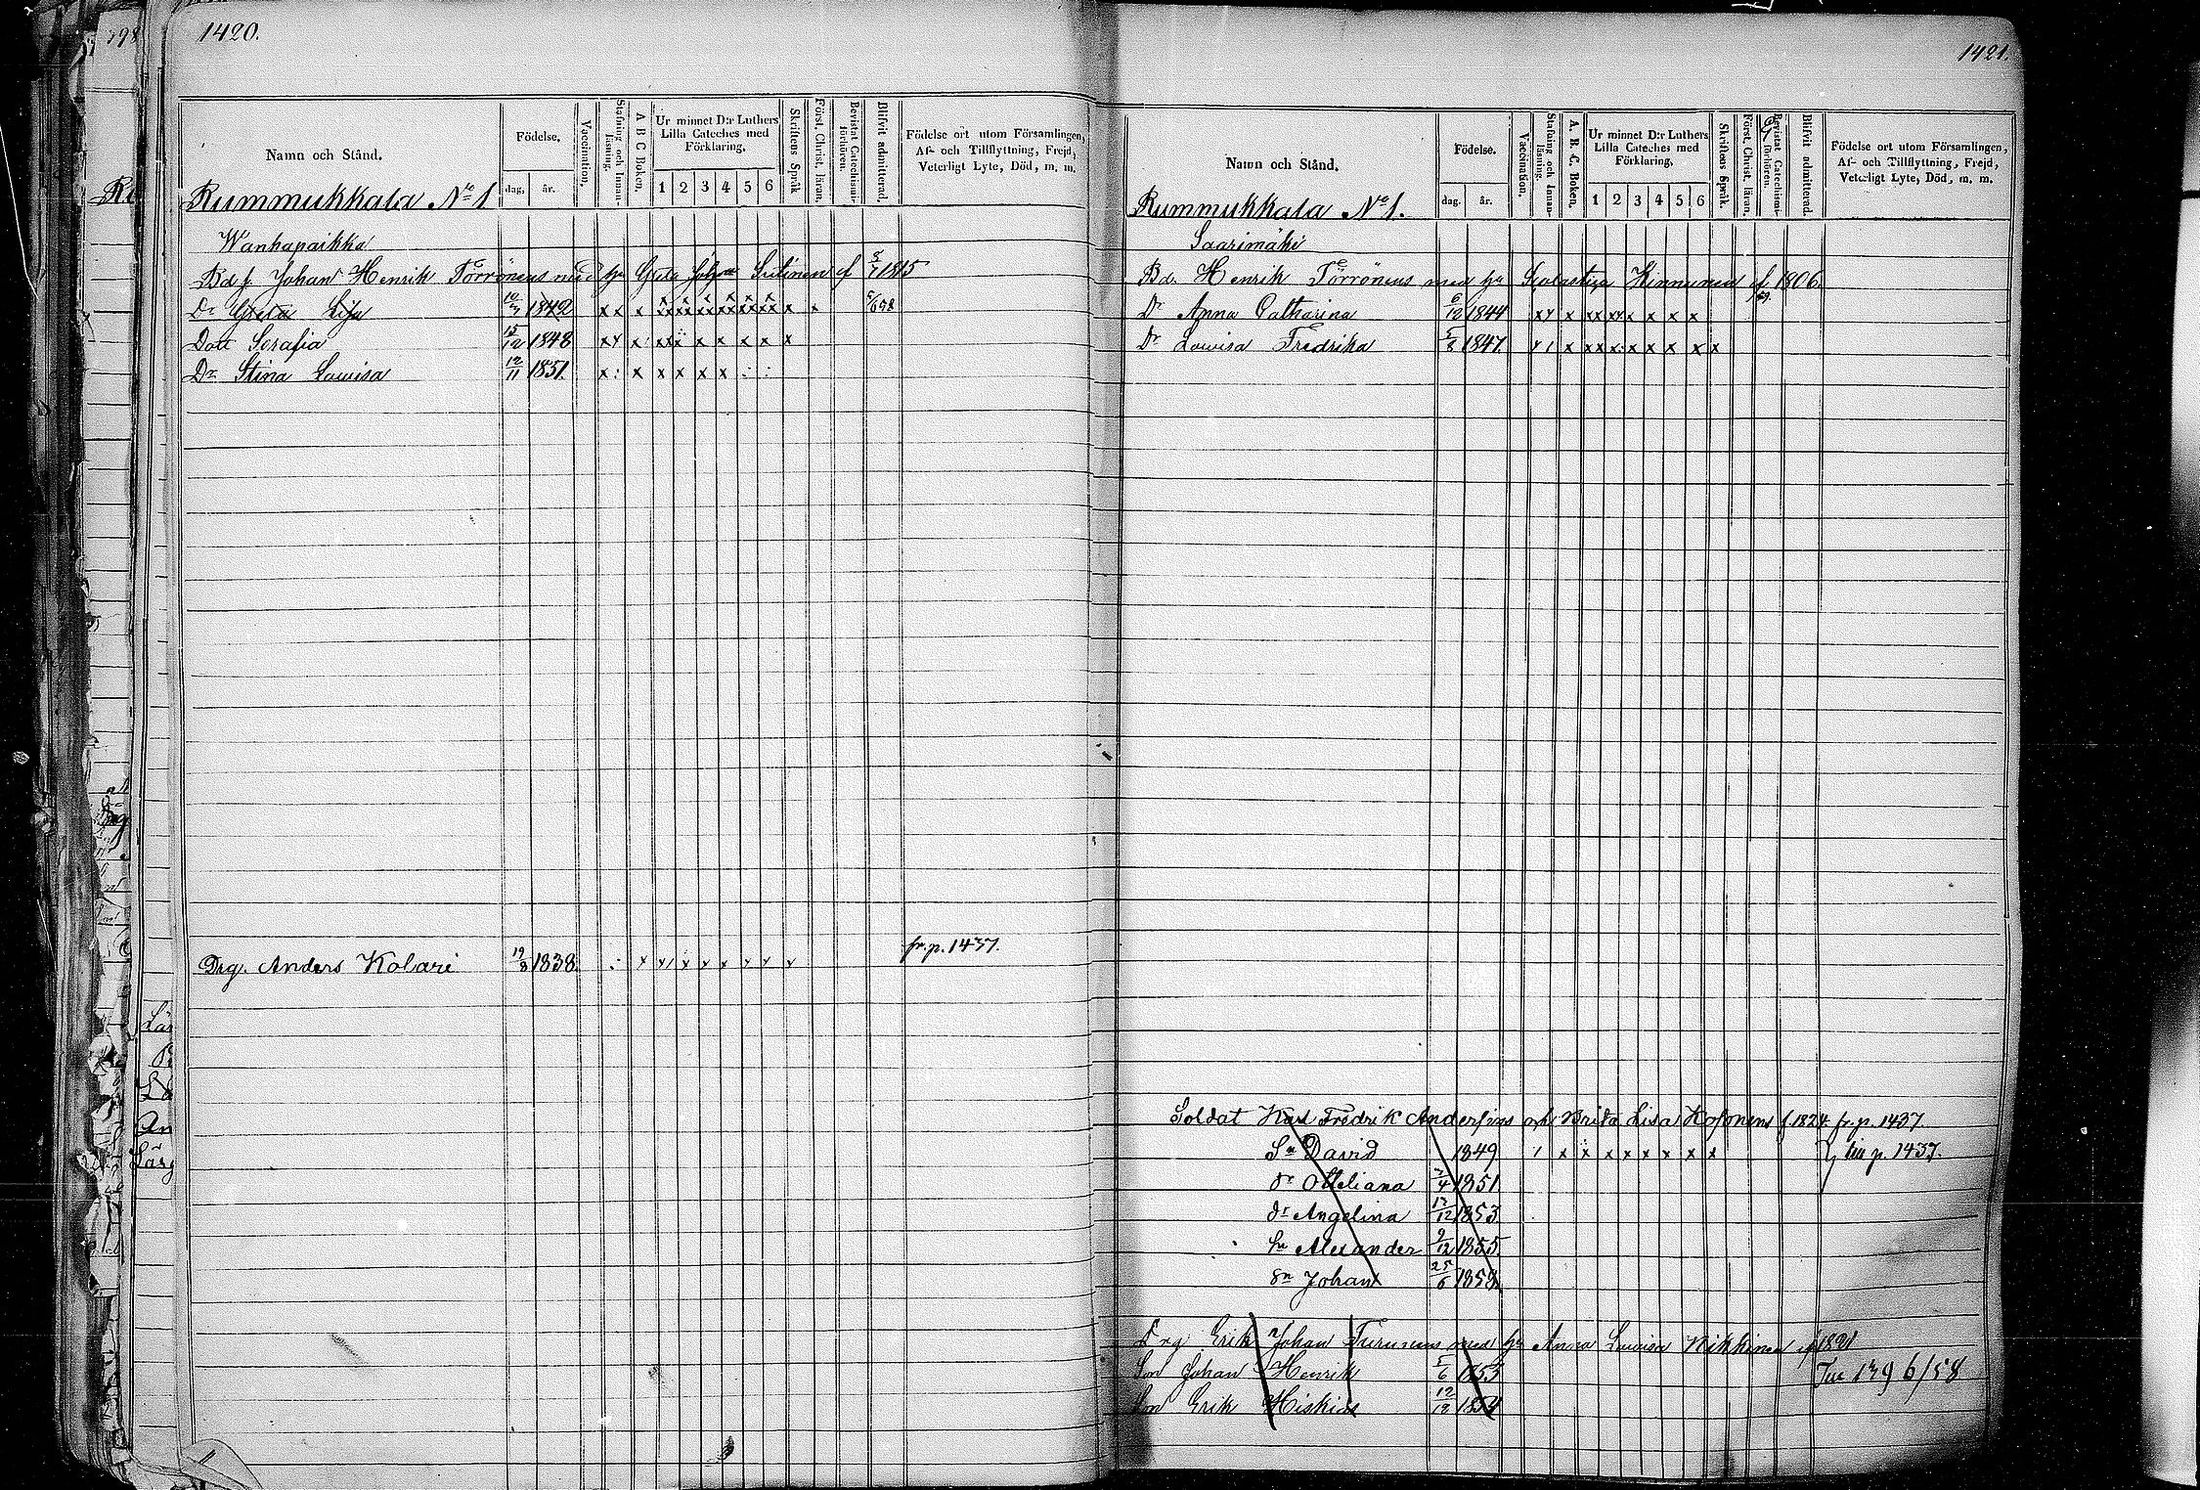 1420.
Namn och Stånd.
Födelse.
dag, år.
Vaccination,
Stafning och Innanläsning.
A B C Boken,
Ur minnet D:r Luthers Lilla Cateches med Förklaring.
1 2 3 4 5 6
Skriftens Språk.
Först. Christ. läran.
Bevistat Catechismiförhören.
Blifvit admitterad,
Födelse ort utom Församlingen,
Af- och Tillflyttning, Frejd,
Veterligt Lyte, Död, m. m.
Rummukkala No 1
Wanhapaikka
Bd f. Johan Henrik Törrönens med hu Greta Sutinen f 3/7 1815
Dr Greta Lisa 10/7 1842 x x x x x x x x x x x
Dott Serafia 15/10 1848 x x x x x x x x x
Dr Stina Lowisa 12/11 1851. x : x x x x x : :
fr. p. 1437.
Drg. Anders Kolari 19/8 1838. : x x x x x x x x
1421.
Namn och Stånd.
Födelse.
dag. år.
Vaccination.
Stafning och Innanläsning.
A. B. C. Boken.
Ur minnet D:r Luthers Lilla Cateches med Förklaring.
1 2 3 4 5 6
Skriftens Språk.
Först. Christ. läran.
Bevistat Catechismiförhören.
Blifvit admitterad.
Födelse ort utom Församlingen,
Af- och Tillflyttning, Frejd,
Veterligt Lyte, Död, m. m.
Rummukkala No 1.
Saarimäki
Bd. Henrik Törrönens med hu Scolastica Kinnunen f 1806.
Dr Anna Catharina 6/12 1844 x x x x x x x x x x
Dr Lowisa Fredrika 5/8 1847. x 1 x x x x x x x x x
Soldat Karl Fredrik Anderssons och Brita Lisa Kosonens f. 1824 fr. p. 1437.
Sn David 1849 1 x x x x x x x x till p. 1437.
dr Otteliana 3/4 1851
dr Angelina 13/12 1853.
Sn Alexander 9/12 1855.
Sn Johan 25/6 1858.
Drg Erik Johan Turunens med hu Anna Lowisa Nikkinen f 1821
Son Johan Henrik 5/6 1853
Son Erik Hiskias 12/12 1854